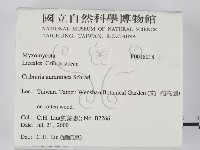 國立自然科學博物館
NATIONAL MUSEUM OF NATURAL SCIENCE
TAICHUNG, TAIWAN, R.O.CHINA
Myxomycota
Liceales Cribrariaceae
Cribraria aurantiaca Schrad.
Loc. Taiwan. Taipei: Wenshan Botanical Garden
on rotten wood.
Col. C.H. Liu No. B2266
Date: Jul. 21, 2000
Det. C.H. Liu